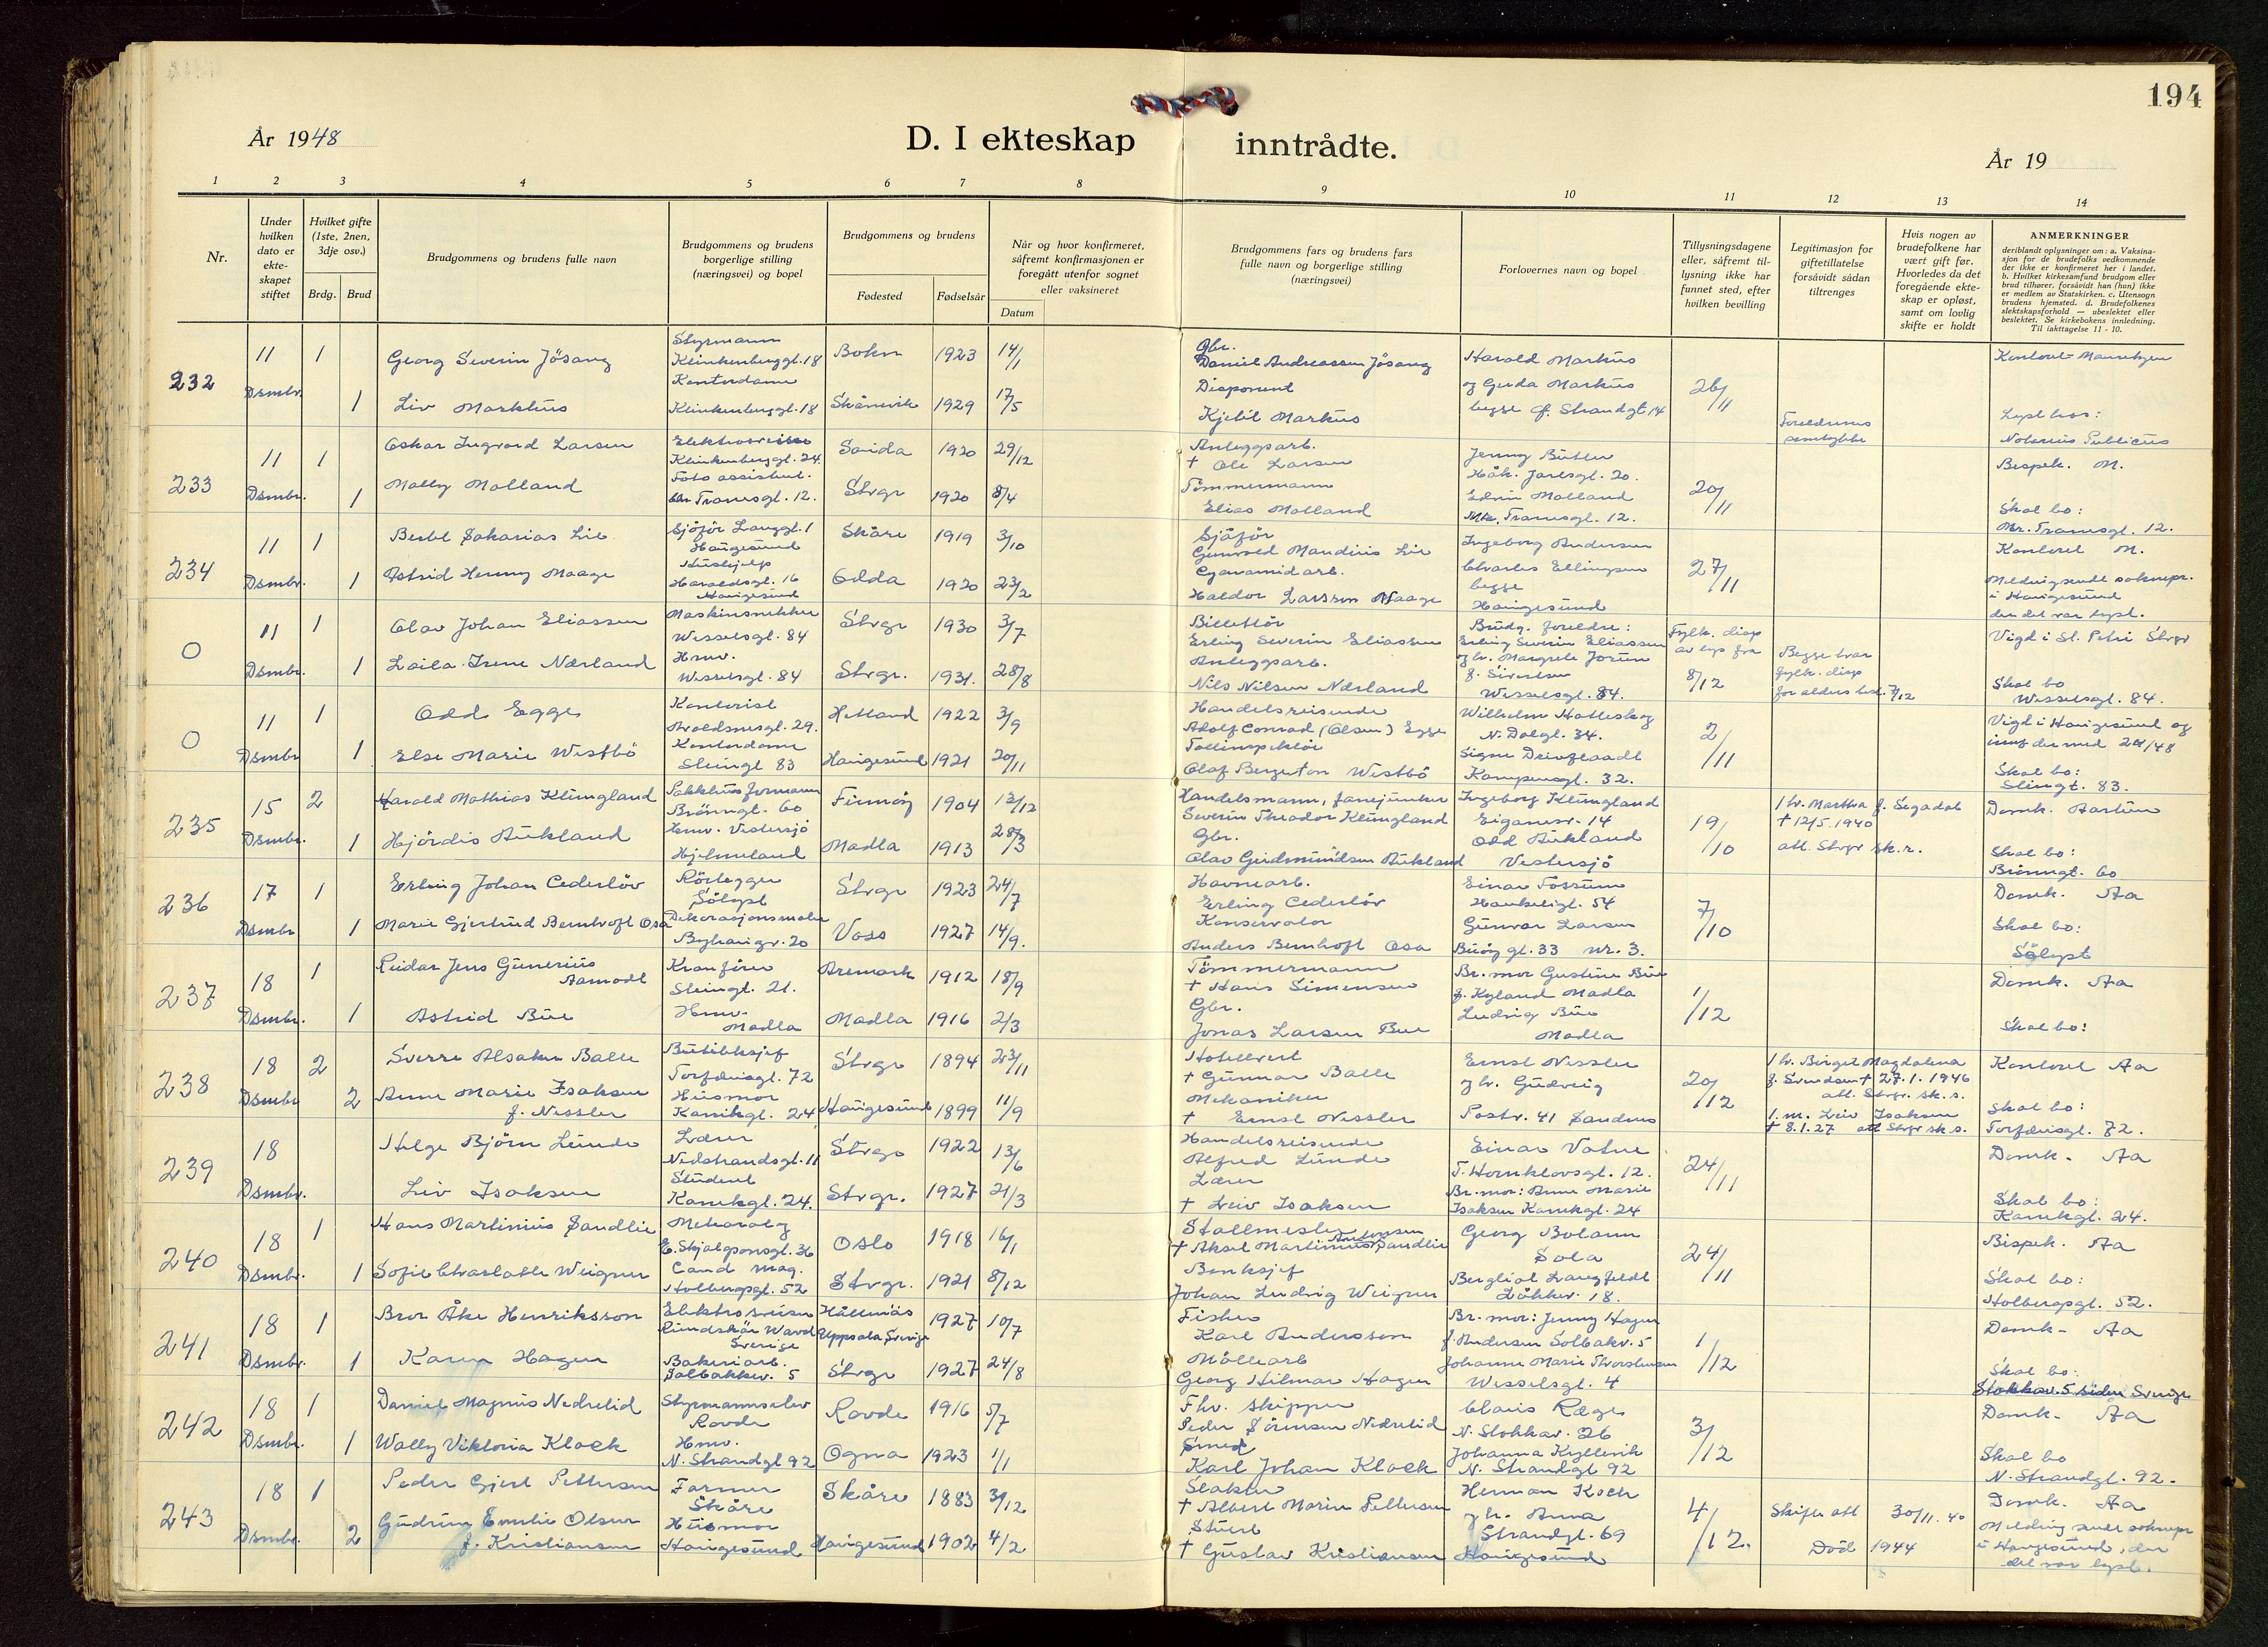 194
År 1948
D. I ekteskap inntrådte.
År 19
1 2 3 4 5 6 7 8 9 10 11 12 13 14
Nr.
Under hvilken dato er ekte- skapet stiftet
Hvilket gifte (1ste, 2nen, 3dje osv.)
Brdg. Brud
Brudgommens og brudens fulle navn
Brudgommens og brudens borgerlige stilling (næringsvei) og bopel
Brudgommens og brudens
Fødested Fødselsår
Når og hvor konfirmeret, såfremt konfirmasjonen er foregått utenfor sognet eller vaksineret
Datum
Brudgommens fars og brudens fars fulle navn og borgerlige stilling (næringsvei)
Forlovernes navn og bopel
Tillysningsdagene eller, såfremt til- lysning ikke har funnet sted, efter hvilken bevilling
Legitimasjon for giftetillatelse forsåvidt sådan tiltrenges
Hvis nogen av brudefolkene har vært gift før. Hvorledes da det foregående ekte- skap er opløst, samt om lovlig skifte er holdt
ANMERKNINGER
deriblandt oplysninger om: a. Vaksina- sjon for de brudefolks vedkommende der ikke er konfirmeret her i landet. b. Hvilket kirkesamfund brudgom eller brud tilhører, forsåvidt han (hun) ikke er medlem av Statskirken. c. Utensogn brudens hjemsted. d. Brudefolkenes slektskapsforhold — ubeslektet eller beslektet. Se kirkebokens innledning. Til iakttagelse 11 - 10.
232
11 1 Georg Severin Jösang Styrmann Klinkenberggt. 18 Bokn 1923 14/1
Dsmbr. 1 Liv Markhus Kontordame Klinkenberggt. 18 Skånevik 1929 17/5
Gbr. Daniel Andreassen Jösang
Disponent
Kjetil Markus
Harald Markus
og Gerda Markus
begge Strandgt 14
26/11
Foreldrenes samtykke
Notarius Publicus
233
11 1 Oskar Ingvard Larsen Klinkenberggt. 24 Sauda 1920 29/12
Dsmbr. 1 Molly Molland Foto assistent. Tranesgt. 12. Strgr 1920 8/4
Anleggsarb.
† Ole Larsen
Tömmermann
Elias Molland
Håk. Jarlsgt. 20.
Edvin Molland
Tranesgt. 12.
20/11
Bispek. M.
Skal bo:
Mr. Tranesgt. 12.
234
11 1 Sakarias Lie Sjåför Haugesund Skåre 1919 3/10
Dsmbr. 1 Astrid Henny Maage Hushjelp Haraldsgt. 16 Haugesund Odda 1920 23/2
Sjåför
Gunvald Mandius Lie
Cyanamidarb.
Haldor Larssen Maage
Ingeborg Andersen
Charles Ellingsen
begge
Haugesund
27/11
Kontoret M.
i Haugesund
der det var lyst.
0
11 1 Olav Johan Eliassen Wesselsgt. 84 Strgr 1930 3/7
Dsmbr. 1 Laila Irene Nærland Hmv. Wesselsgt. 84 Strgr. 1931. 28/8
Billettör
Erling Severin Eliassen
Anleggsarb.
Nils Nilsen Nærland
Brudg. foreldre:
Erling Severin Eliassen
f. Sivertsen
Wesselsgt. 84.
8/12
Vigd i St. Petri Strgr
Skal bo
Wesselsgt. 84.
0
11 1 Odd Egge Kontorist Hetland 1922 3/9
Dsmbr 1 Else Marie Westbö Kontordame Steingt 83 Haugesund 1921 20/11
Handelsreisende
Adolf Conrad (Olsen) Egge
Tollinspektör
Olaf Bergeton Westbö
N. Dalgt. 34.
Kampensgt. 32.
2/11
Vigd i Haugesund og
Skal bo:
Steingt. 83.
235
15 2 Harald Mathias Klungland Pakkhusformann Brömngt. 60 Finnöy 1904 12/12
Dsmbr. 1 Hjördis Aukland Hmv. Vestersjö Hjelmeland Madla 1913 28/3
Handelsmann, fanejunker
Severin Theodor Klungland
Gbr.
Olav Gudmundsen Aukland
Ingeborg Klungland
Eiganesv. 14
Odd Aukland
Vestersjö
19/10
1 hr. Martha f. Segadal
† 12/5. 1940
att. Strgr sk.r.
Skal bo:
236
17 1 Erling Johan Cederlöv Rörlegger Sölyst Strgr 1923 24/7
Dsmbr 1 Marie Gjertrud Bernhoft Osa Dekorasjonsmaler Byhaugv. 20 Voss 1927 14/9.
Havnearb.
Erling Cederlöv
Konservator
Anders Bernhoft Osa
Einar Fossum
Haukeligt. 54
Gunvor Larsen
Buöygt. 33 nr. 3.
7/10
Domk. Aa
Skal bo:
Sölyst
237
18 1 Reidar Jens Gunerius Aamodt Kranförer Steingt. 21. Aremark 1912 18/9
Dsmbr. 1 Astrid Bue Hmv. Madla Madla 1916 2/3
Tömmermann
† Hans Simensen
Gbr.
Jonas Larsen Bue
Br. mor Gustine Bue
f. Kyland Madla
Ludvig Bue
Madla
1/12
Domk. Aa
Skal bo:
238
18 2 Sverre Alsaker Balle Butikksjef Torfæusgt. 72 Strgr 1894 23/11
Dsmbr 2 Anne Marie Isaksen f. Nessler Husmor Kanikgt. 24 Haugesund 1899 11/9
Hotellvert
† Gunnar Balle
Mekaniker
† Ernst Nessler
Ernst Nessler
og hr. Gudveig
Postv. 41 Sandnes
20/12
1 hr. Birget Magdalena
f. Svendsen † 27.1.1946
att. Strgr. sk. s.
1. m. Leiv Isaksen
† 8.1.27 att Strgr sk. s.
Kontoret Aa
Skal bo:
Torfæusgt. 72.
239
18 Helge Björn Lunde Lærer Nedstrandsgt. 11 Strgr 1922 13/6
Dsmbr. Liv Isaksen Student Kanikgt. 24. Strgr. 1927 21/3
Handelsreisende
Alfred Lunde
Lærer
† Leiv Isaksen
Einar Vatne
T. Hornklovesgt. 12.
Br. mor: Anne Marie
Isaksen Kanikgt. 24
24/11
Domk. Aa
Skal bo:
Kanikgt. 24.
240
18 1 Hans Martinius Sandlie Meteorolog E. Skjalgsonsgt. 36 Oslo 1918 16/1
Dsmbr. 1 Sofie Charlotte Weigner Cand mag. Holbergsgt. 52 Strgr. 1921 8/12
Stallmester
† Aksel Martinius Antonsen Sandlie
Banksjef
Johan Ludvig Weigner
Georg Bolann
Sola
Bergliot Langfeldt
Lökkev. 18.
24/11
Bispek. Aa
Skal bo:
Holbergsgt. 52.
241
18 1 Bror Åke Henriksson Sverige Hållnäs Uppsala Sverige 1927 10/7
Dsmbr. 1 Karen Hagen Bakeriarb. Solbakkev. 5 Strgr 1927 24/8
Fisker
Karl Andersson
Möllearb
Georg Hilmar Hagen
Br. mor: Jenny Hagen
f. Andersen Solbakv. 5
Johanne Marie Thorstensen
Wesselsgt. 4
1/12
Domk. Aa
Skal bo:
242
18 1 Daniel Magnus Nedrelid Styrmannselev Rovde Rovde 1916 5/7
Dsmbr. 1 Wally Viktoria Kloek Hmv. N. Strandgt 92 Ogna 1923 1/1
Fhv. skipper
Peder Nedrelid
Smed
Karl Johan Kloek
Claus Ræge
N. Stokkav. 26
Johanna Kyllevik
N. Strandgt 92
3/12
Domk. Aa
Skal bo
N. Strandgt. 92.
243
18 1 Peder Gjert Pettersen Farmer Skåre Skåre 1883 31/12
Dsmbr. 2 Gudrun Emilie Olsen f. Kristiansen Husmor Haugesund Haugesund 1902 4/2
† Albert Marin Pettersen
† Gustav Kristiansen
Herman Koch
og hr. Anna
Strandgt. 69
Haugesund
4/12.
Skifte att 30/11. 40
Död 1944
Domk. Aa
Melding sendt sokneps
i Haugesund, der
det var lyst.